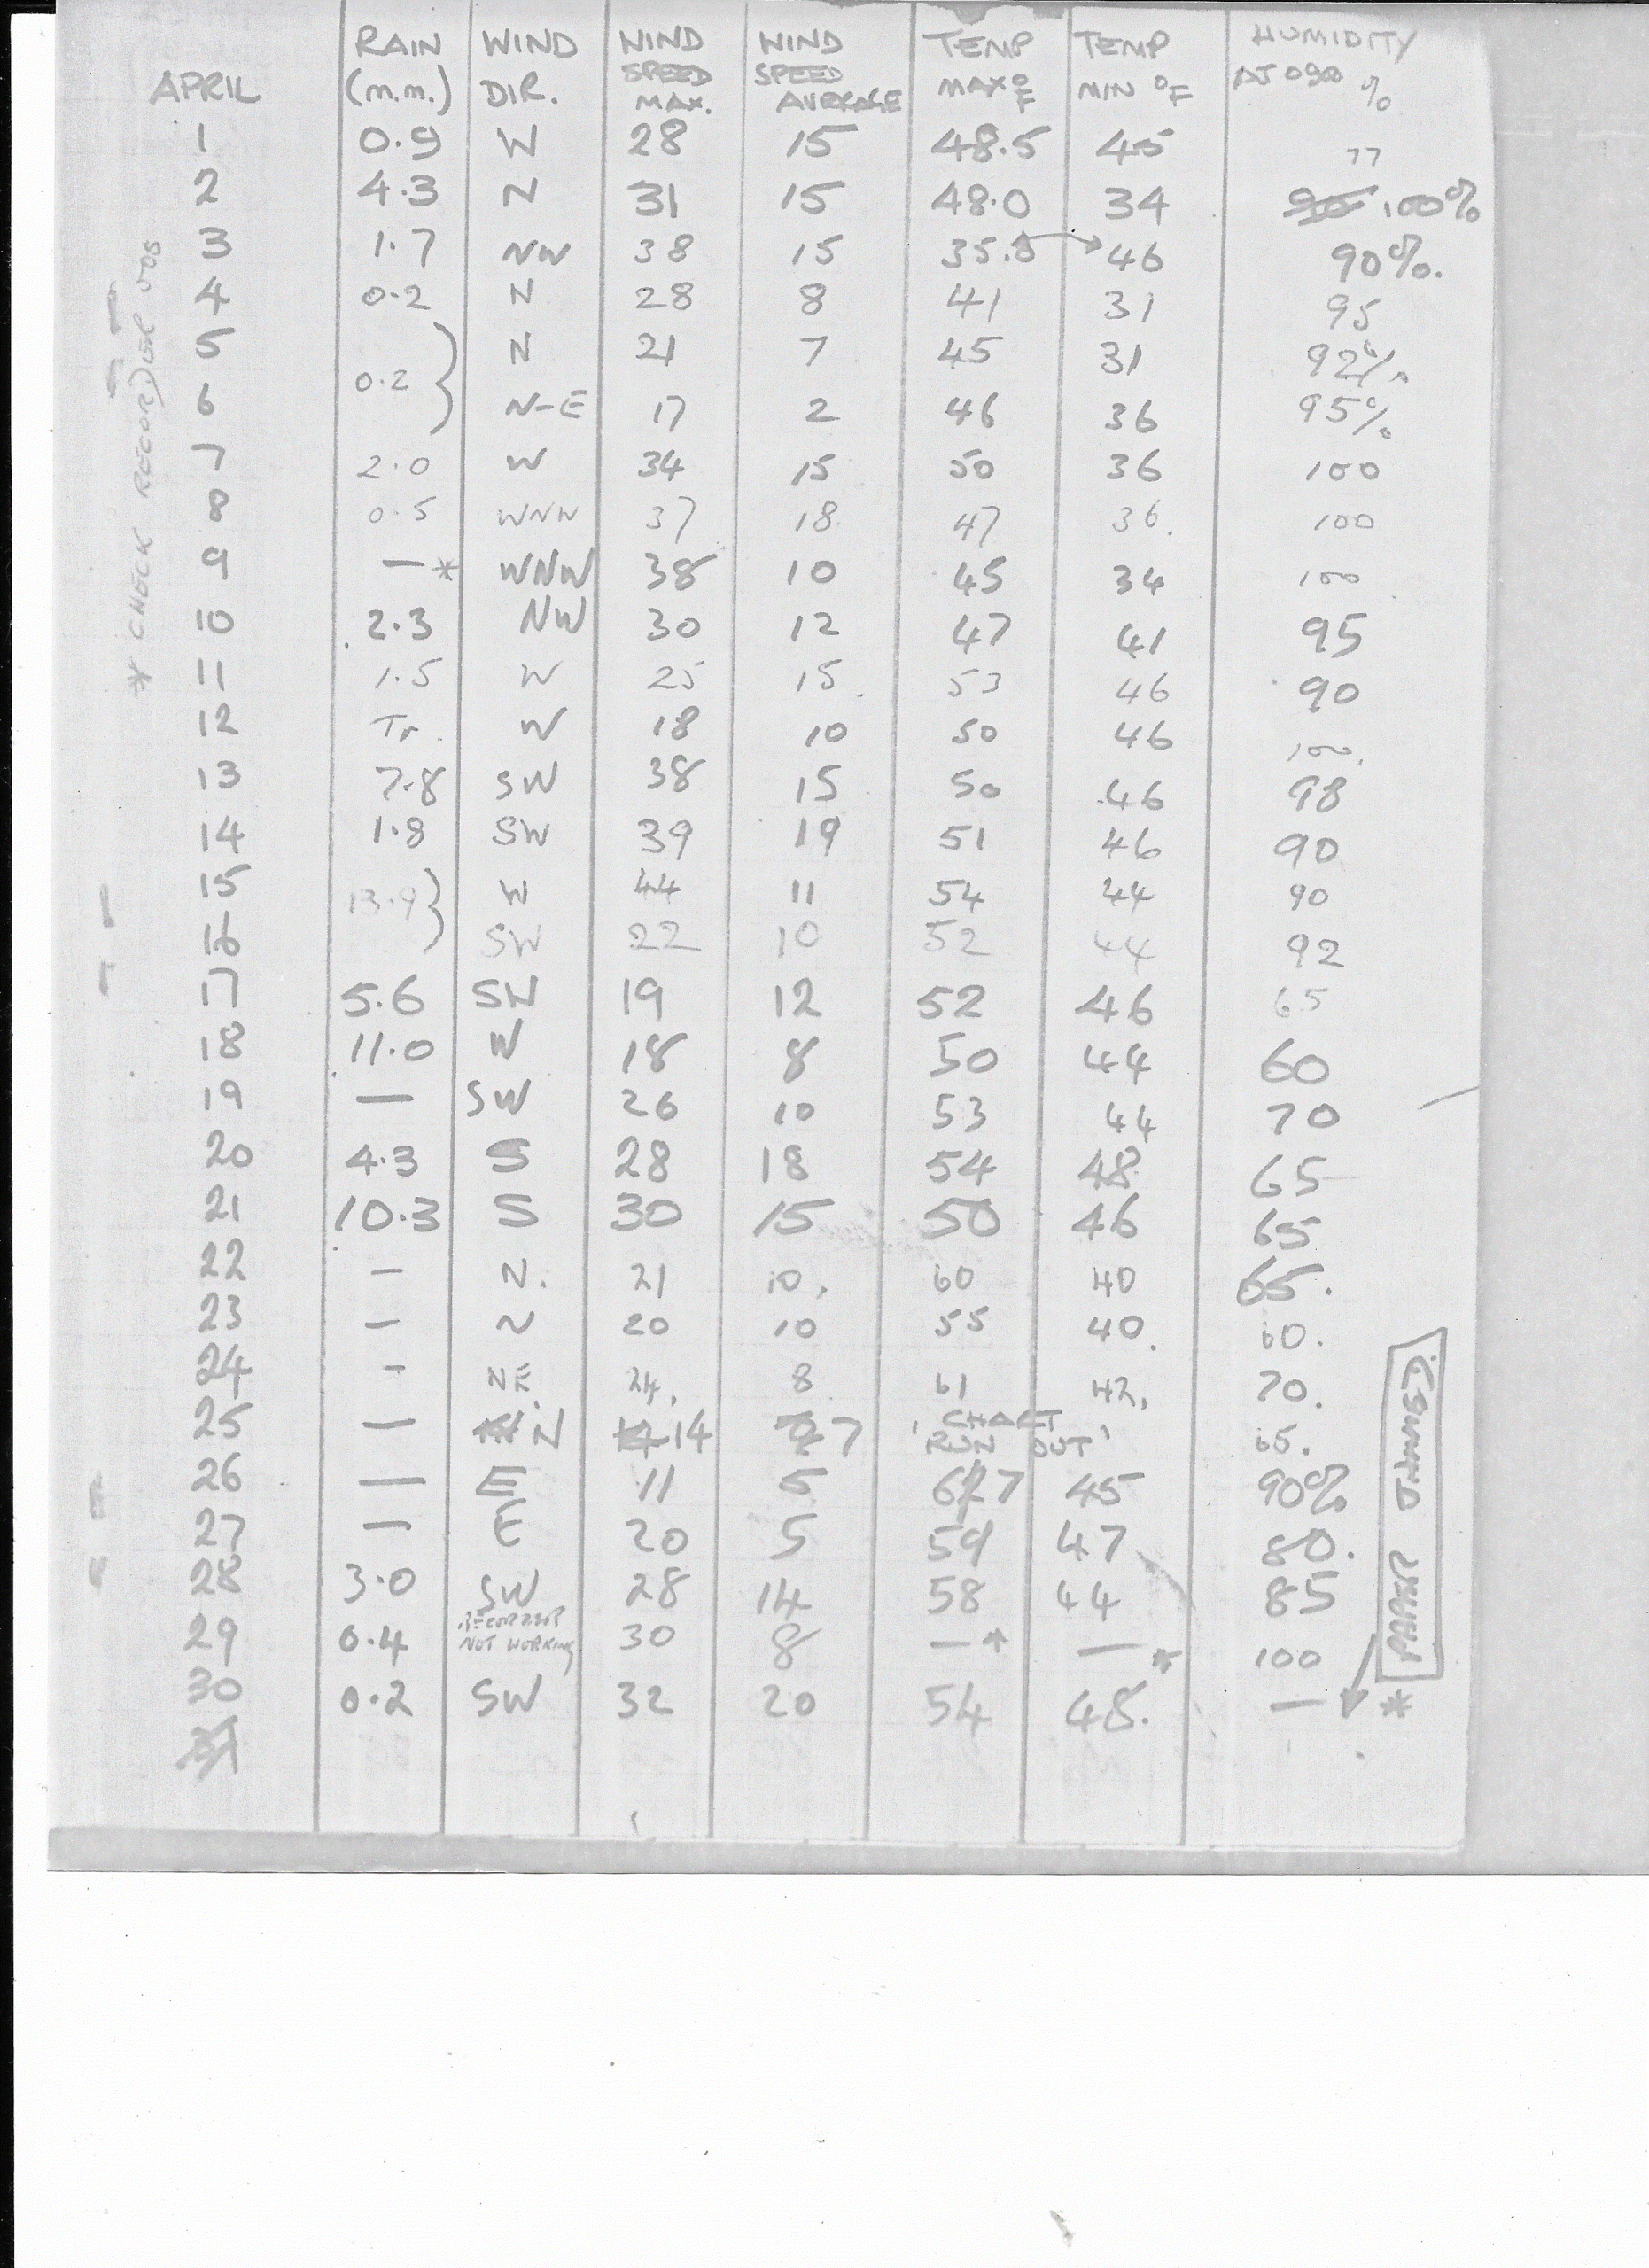 APRIL RAIN (m.m.) WIND DIR. WIND SPEED MAX. WIND SPEED AVERAGE TEMP MAX °F TEMP MIN °F HUMIDITY AT 0900 %
1 0.9 W 28 15 48.5 45 77
2 4.3 N 31 15 48.0 34 100%
3 1.7 NW 38 15 35.5 46 90%.
4 0.2 N 28 8 41 31 95
5 N 21 7 45 31 92%
0.2 }
6 N-E 17 2 46 36 95%
7 2.0 W 34 15 50 36 100
8 0.5 WNW 37 18 47 36. 100
9 —* WNW 38 10 45 34 100
10 2.3 NW 30 12 47 41 95
11 1.5 W 25 15. 53 46 90
12 Tr. W 18 10 50 46 100.
13 7.8 SW 38 15 50 46 98
14 1.8 SW 39 19 51 46 90
15 W 44 11 54 44 90
13.9 }
16 SW 22 10 52 44 92
17 5.6 SW 19 12 52 46 65
18 11.0 W 18 8 50 44 60
19 — SW 26 10 53 44 70
20 4.3 S 28 18 54 48 65
21 10.3 S 30 15 50 46 65
22 — N. 21 10. 60 40 65.
23 — N 20 10 55 40. 60.
24 - NE. 24. 8 61 42. 70.
25 — N 14 7 'CHART RUN OUT' 65.
26 — E 11 5 67 45 90%
27 — E 20 5 59 47 80.
28 3.0 SW 28 14 58 44 85
29 0.4 RECORDER NOT WORKING 30 8 —* —* 100
30 0.2 SW 32 20 54 48. — *
31
* CHECK RECORDER